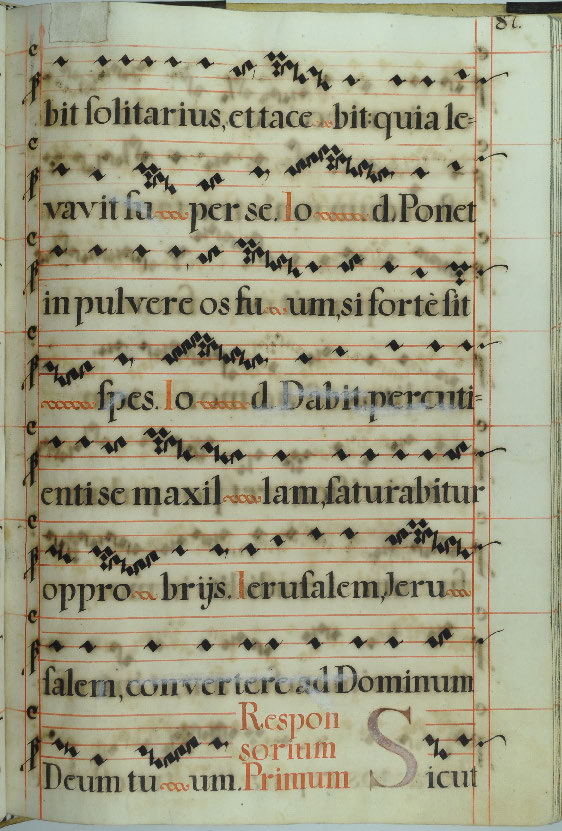 87.
bit solitarius, et tace bit: quia le=
vavit su per se. Io d. Ponet
in pulvere os su um, si fortè sit
spes. Io d. Dabit percuti=
enti se maxil lam, saturabitur
oppro brijs. Ierusalem, Jeru
salem, convertere ad Dominum
Deum tu um. Responsorium Primum Sicut